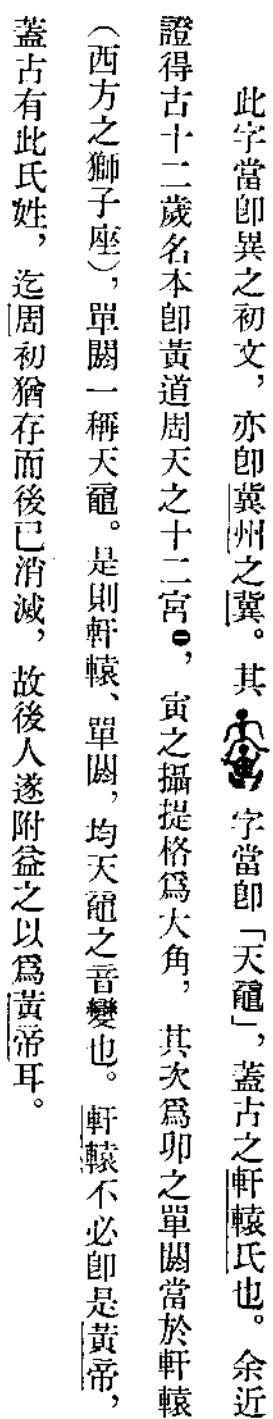 此字當卽異之初文，亦卽冀州之冀。其字當卽「天黿」，蓋古之軒轅氏也。余近
證得古十二歲名本卽黃道周天之十二宮㊀，寅之攝提格爲大角，其次爲卯之單閼當於軒轅
（西方之獅子座），單閼一稱天黿。是則軒轅、單閼，均天黿之音變也。軒轅不必卽是黃帝，
蓋古有此氏姓，迄周初猶存而後已消滅，故後人遂附益之以爲黃帝耳。